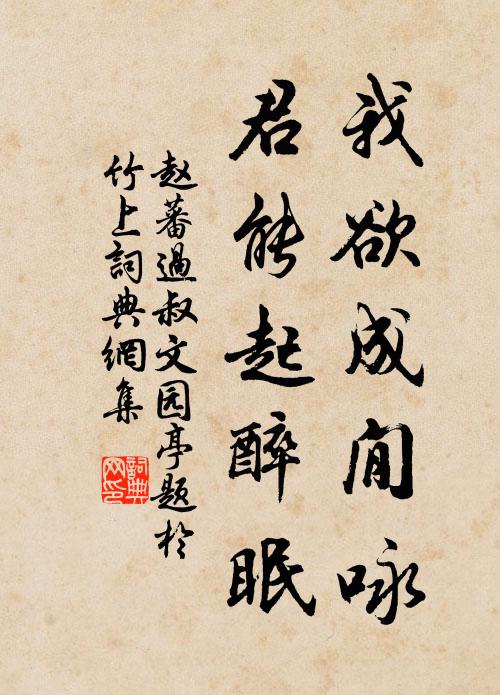 我欲成閒咏
君能起醉眠
赵蕃過叔文园亭题於
竹上詞典網集
詞典
网印